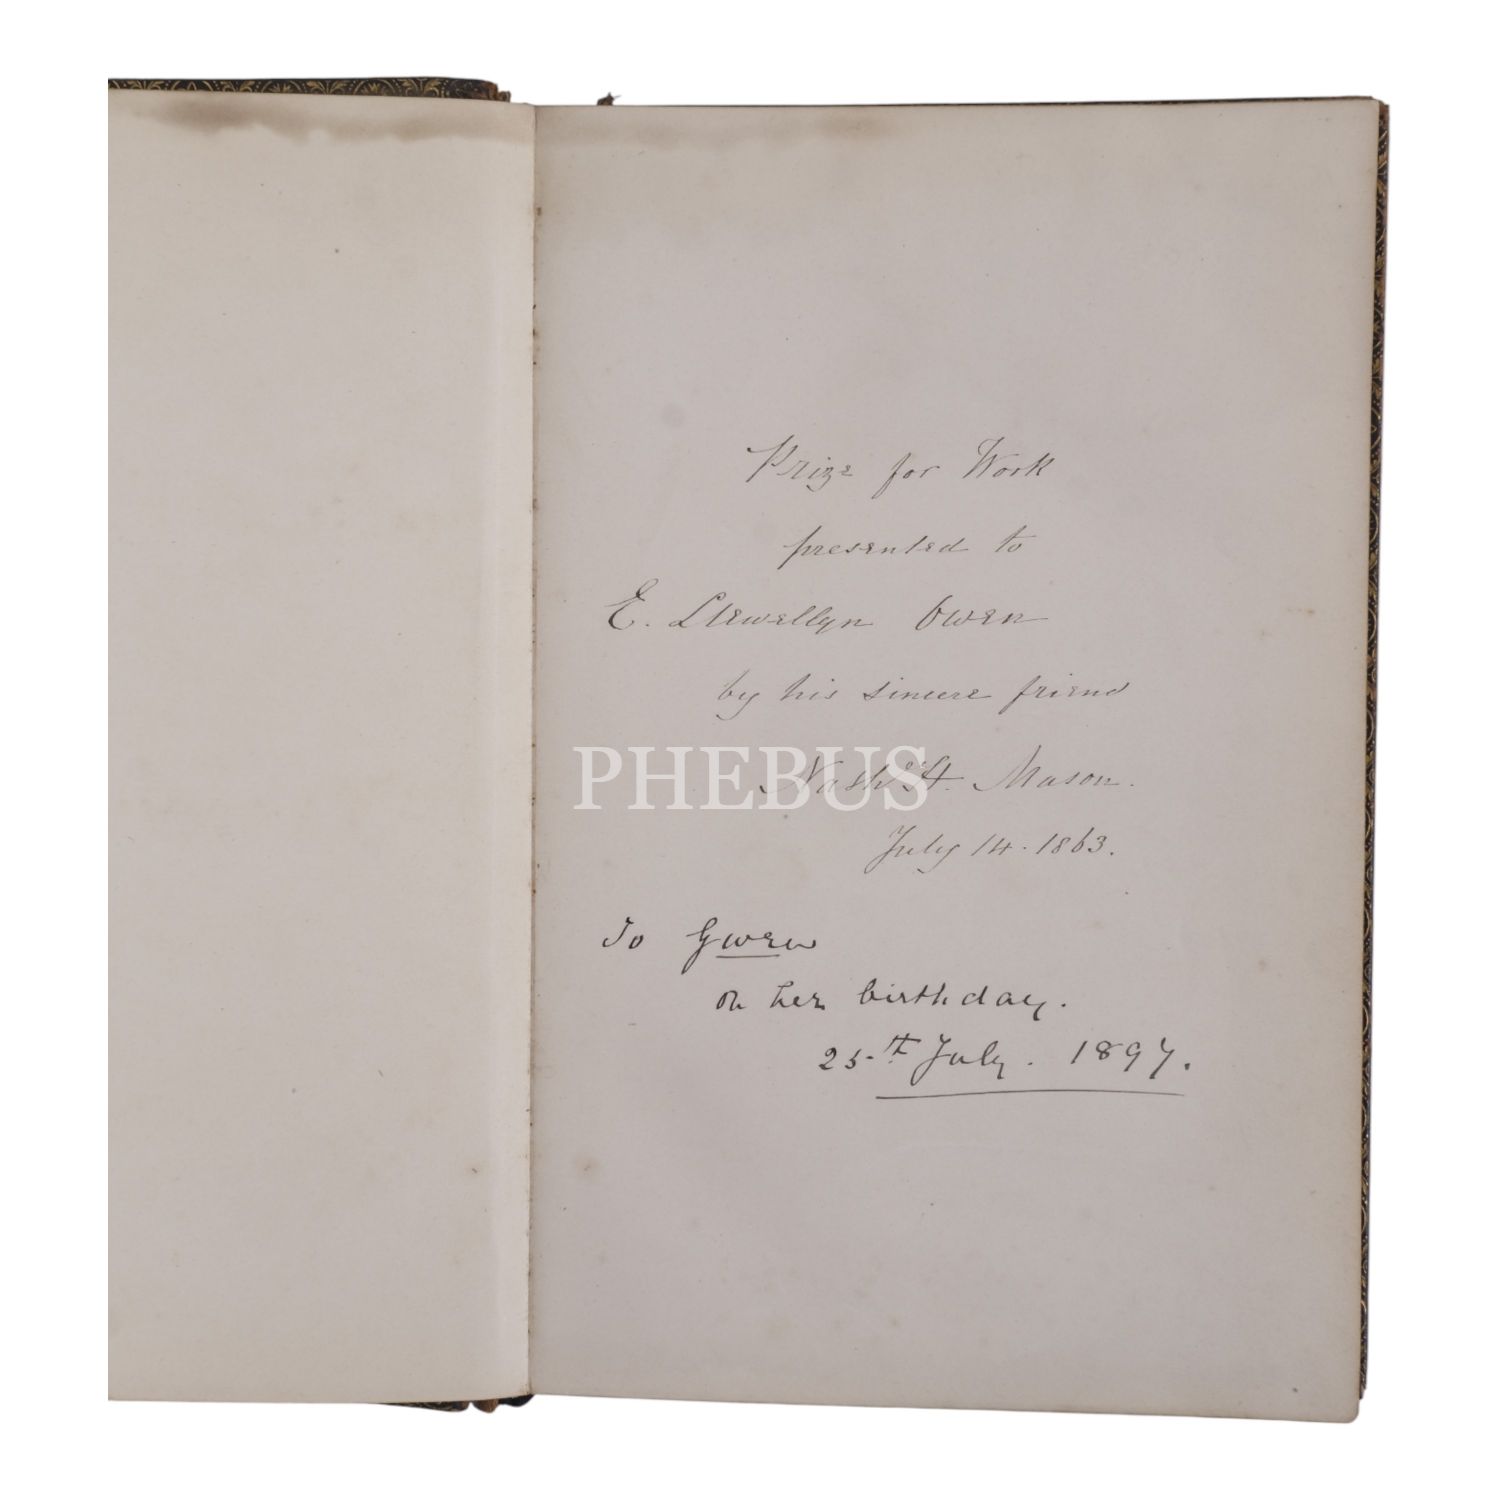 Prize for Work
presented to
E. Llewellyn Owen
by his sincere friend
PHEBUS
H. Mason.
July 14. 1863.
To Gwen
on her birthday.
25th July. 1897.